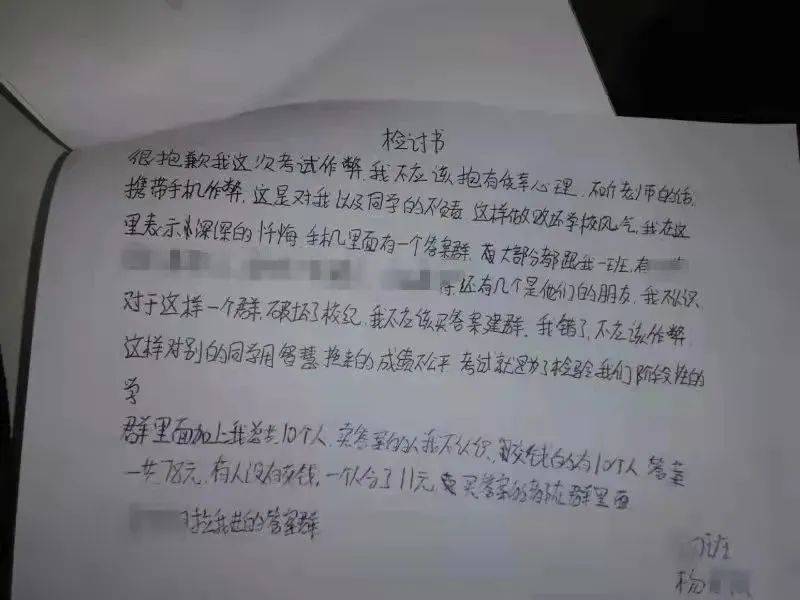 检讨书
很抱歉我这次考试作弊,我不应该抱有侥幸心理,不听老师的话,
携带手机作弊,这是对我以及同学的不负责 这样做败坏学校风气,我在这
里表示深深的忏悔 手机里面有一个答案群,有大部分都跟我一班,有
等 还有几个是他们的朋友,我不认识,
对于这样一个群,破坏了校纪,我不应该买答案建群,我错了,不应该作弊
这样对别的同学用智慧换来的成绩不公平 考试就是为了检验我们阶段性的
学
群里面加上我总共10个人,卖答案的人我不认识,交钱的有10个人 答案
一共78元,有人没有交钱,一个人合了11元 买答案的都在群里面
拉我进的答案群
班
杨